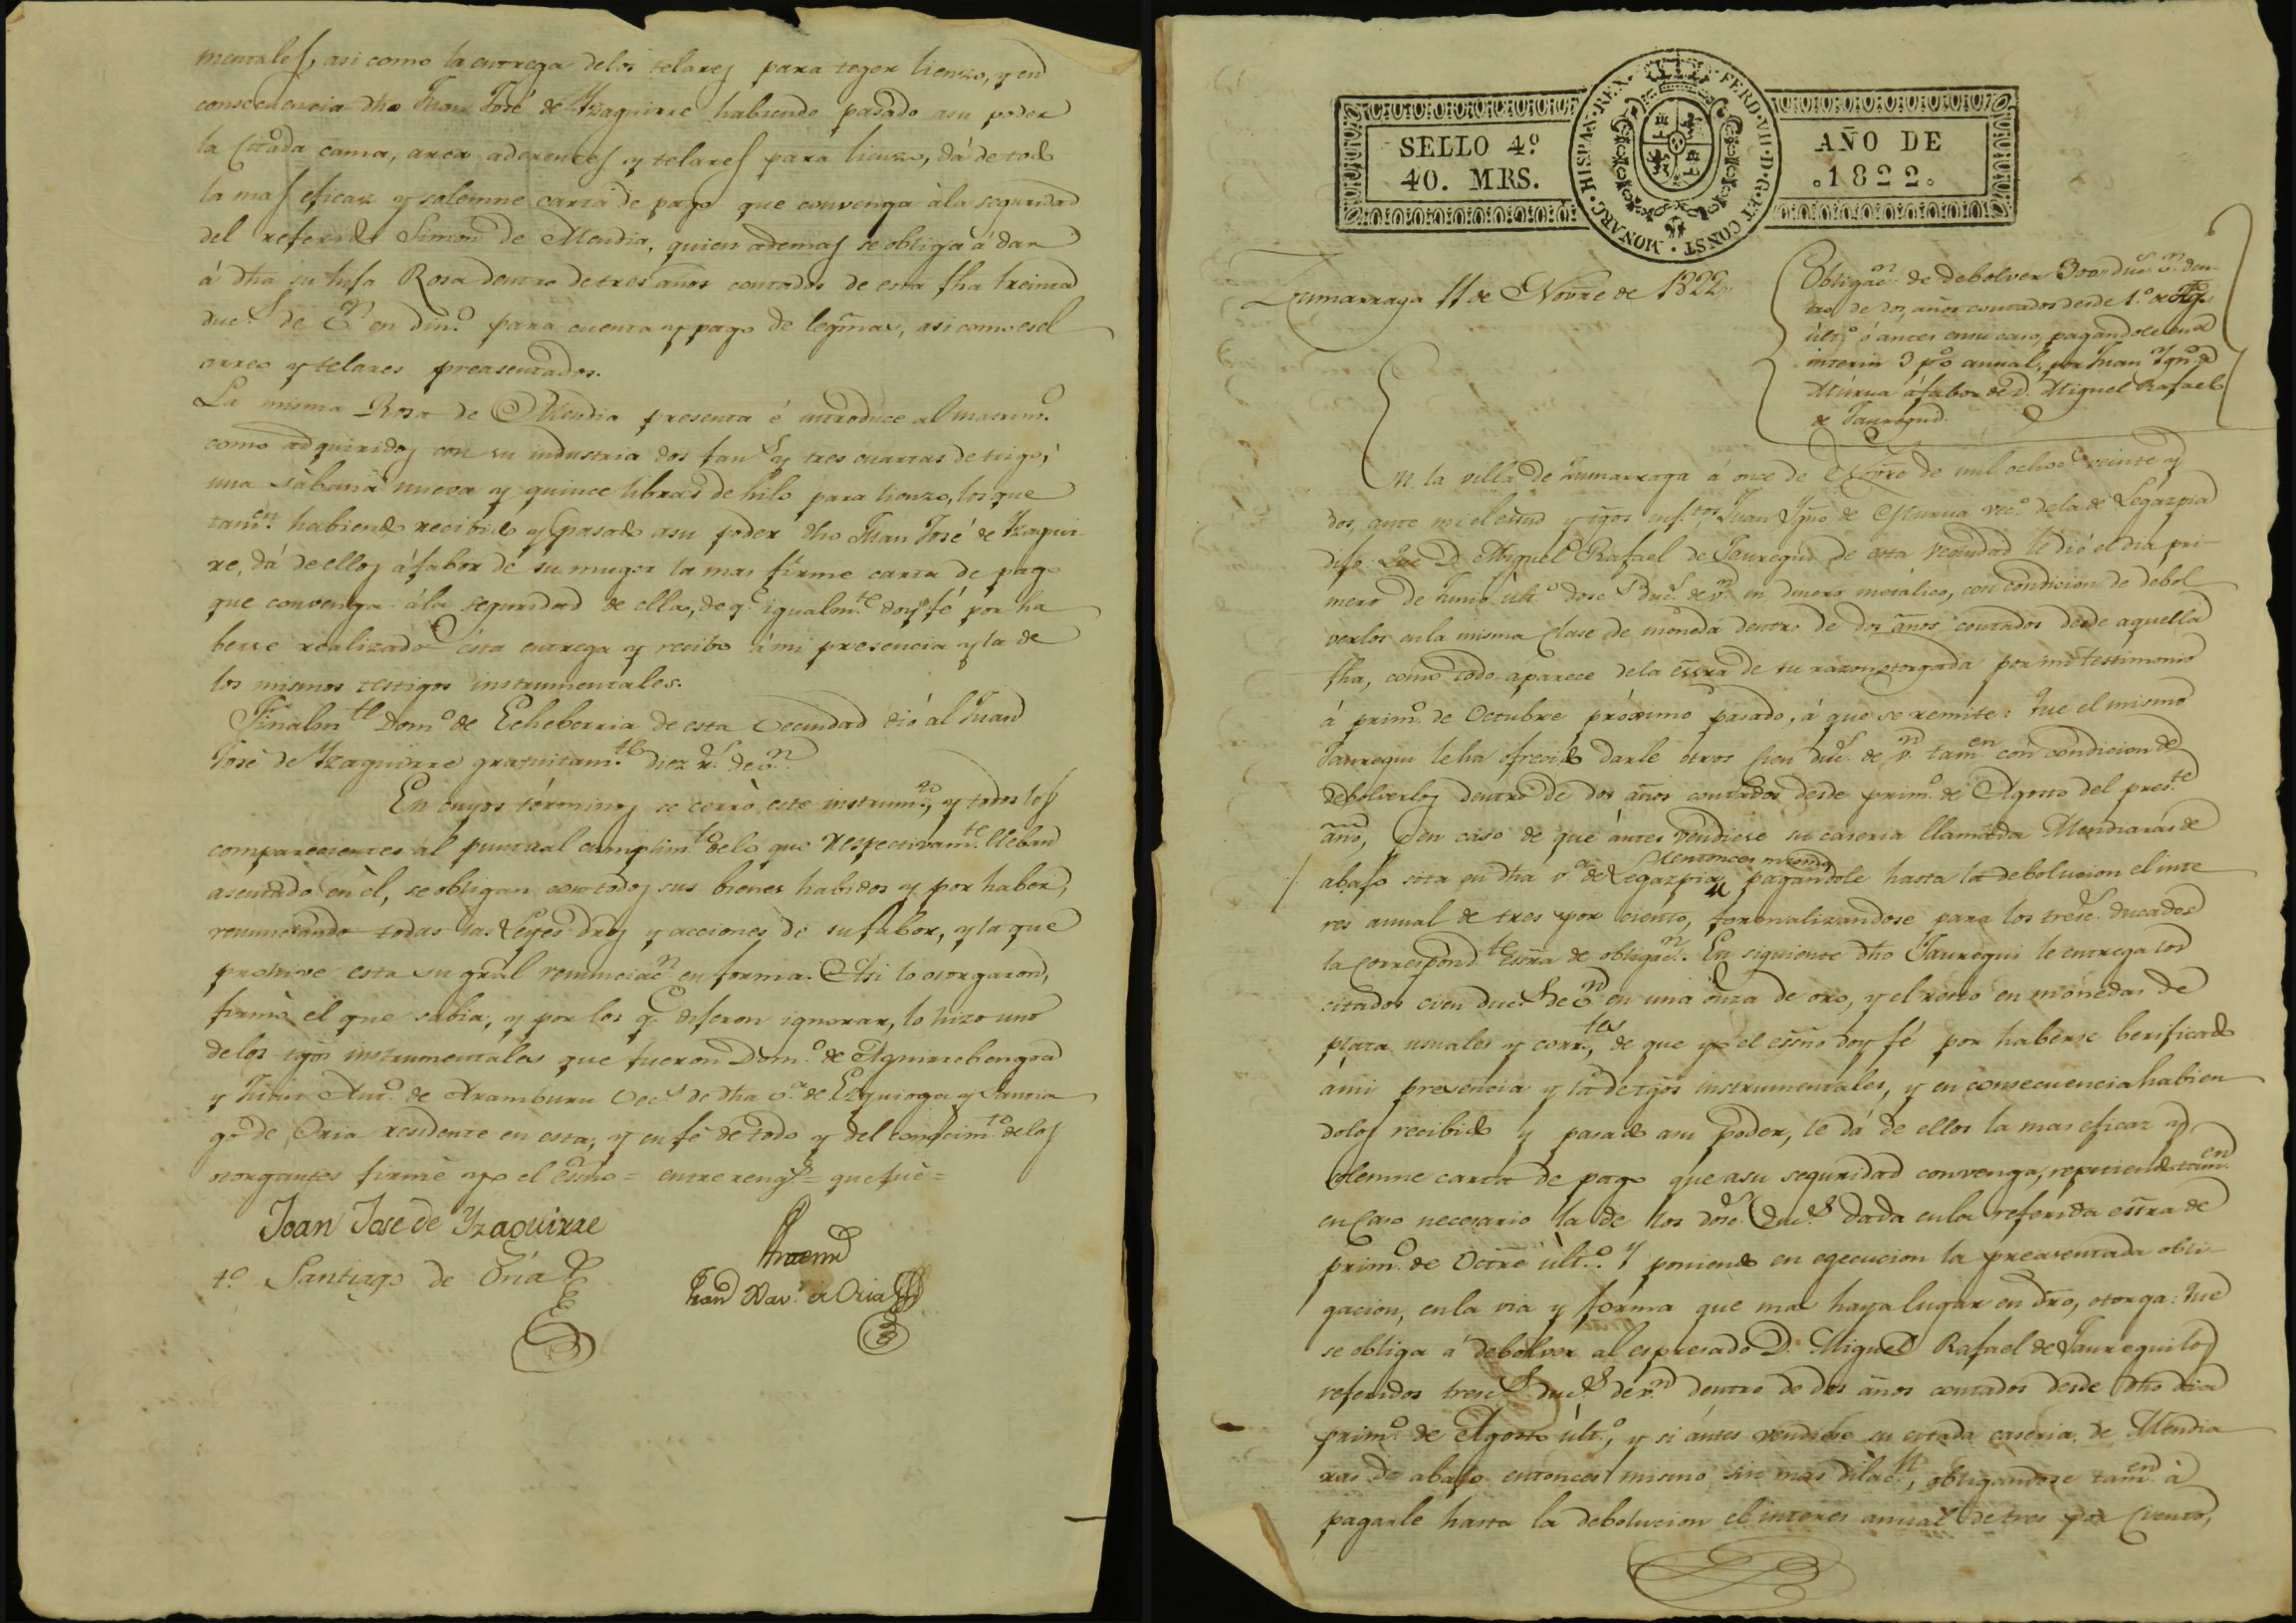 mentales, asi como la entrega delos telares para teger lienzo, y en
consecuencia dho Juan José de Yzaguirre habiendo pasado asu poder
la citada cama, arca aderentes y telares para lienzo, dá de todo
la mas eficaz y solemne carta de pago que convenga àla seguridad
del referido Simon de Mendia, quien ademas se obliga á dar
á dha su hija Rosa dentro de tres años contados de esta fha treinta
duc.s de v.n en din.o para cuenta y pago de legitimas, asi como es el
arreo y telares preasentados.
La misma Rosa de Mendia presenta é introduce al matrim.o
como adquiridos con su industria dos fan.s y tres cuartas de trigo,
una sàbana nueva y quince libras de hilo para lienzo, los que
tam.en habiendo recibido y pasado asu poder dho Juan José de Yzaguir-
re, dá de ellos áfabor de su muger la mas firme carta de pago
que convenga àla seguridad de ellas, de q.e igualm.te doy fé por ha
berse realizado ésta entrega y recibo ámi presencia y la de
los mismos testigos instrumentales.
Finalm.te Dom.o de Echeberria de esta vecindad dió al Juan
José de Yzaguirre gratuitam.te diez r.s de v.n
En cuyos términos se cerró este instrum.to, y todos los
comparecientes al puntual cumplim.to delo que respectivam.te lleban
asentado en èl, se obligan con todos sus bienes habidos y por haber,
renunciando todas las Leyes dros y acciones de su fabor, y la que
prohive esta su gral renunciac.n en forma. Asi lo otorgaron,
firmò el que sabia, y por los q.e dijeron ignorar, lo hizo uno
delos tgos instrumentales que fueron Dom.o de Aguirrebengoa
y Juan Ant.o de Aramburu vec.s de dha v.a de Ezquioga y Santia
go de Oria residente en esta, y en fé de todo y del conocim.to delos
otorgantes firmè yo el esno = entre reng.s = que fuè =
Joan Jose de Yzaguirre
t.o Santiago de Oria
Antemi
Juan Xav.r de Oria
SELLO 4º
40. MRS.
HISPAN·REX·FERD·VII·D·G·ET CONST·MONARC·
AÑO DE
1822.
Zumarraga 11 de Novre de 1822.
Obligac.n de debolver 300 duc.s v.n den-
tro de dos años contados desde 1.o de Ag.to
últ.o ó antes en su caso, pagandole en el
interin 3 p.o annual, por Juan Ygn.o de
Murua áfabor de D. Miguel Rafael
de Jauregui.
En la villa de Zumarraga á once de Novre de mil ochoc.s veinte y
dos, ante mi el esno y tgos infros Juan Ygno de Murua vec.o dela de Legazpia
dijo: Que D. Miguel Rafael de Jauregui de esta vecindad le dió el dia pri-
mero de Junio últ.o dosc.s duc.s de v.n en dinero metálico, con condicion de debol
verlos en la misma clase de moneda dentro de dos años contados desde aquella
fha, como todo aparece dela essra de su razon otorgada por mi testimonio
á prim.o de Octubre próximo pasado, á que se remite: Que el mismo
Jauregui le ha ofrecido darle otros cien duc.s de v.n tam.en con condicion de
debolverlos dentro de dos años contados desde prim.o de Agosto del pres.te
año, y en caso de que ántes vendiese su caseria llamada Mendiarás de
entonces mismo
abajo sita en dha v.a de Legazpia, pagandole hasta la debolucion el inte
res anual de tres por ciento, formalizandose para los tresc.s ducados
la correspond.te essra de obligac.n. En siguiente dho Jauregui le entrega los
citados cien duc.s de v.n en una onza de oro, y el resto en monedas de
plata usuales y corr.tes, de que yo el essno doy fé por haberse berificado
ámi presencia y la de tgos instrumentales, y en consecuencia habien
dolos recibido y pasado asu poder, le dá de ellos la mas eficaz y
solemne carta de pago que asu seguridad convenga, repitiendo tam.en
en caso necesario la de los dosc.s duc.s dada en la referida essra de
prim.o de Octre últ.o. Y poniendo en egecucion la preasentada obli-
gacion, en la via y forma que mas haya lugar en dro, otorga: Que
se obliga á debolver al espresado D. Miguel Rafael de Jauregui los
referidos tresc.s duc.s de v.n dentro de dos años contados desde dho dia
prim.o de Agosto últ.o, y si ántes vendiese su citada caseria de Mendia
ras de abajo entonces mismo sin mas dilac.n, obligandose tam.en à
pagarle hasta la debolucion el interes anual de tres por ciento,